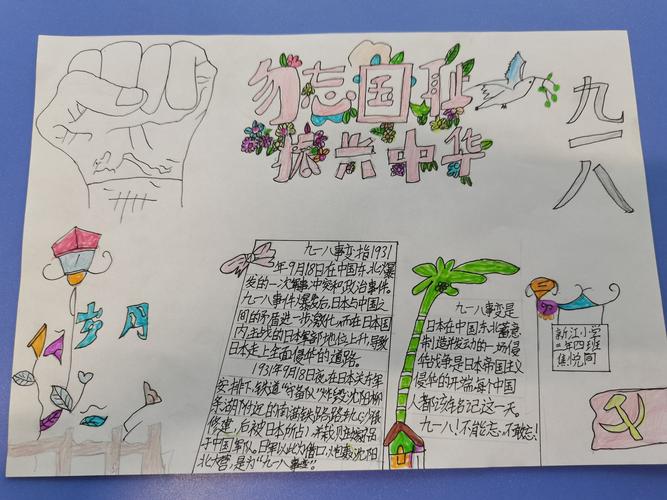 勿忘国耻
振兴中华
九一八
岁月
九一八事变指1931
年9月18日在中国东北爆
发的一次军事冲突和政治事件。
九一八事件爆发后,日本与中国之
间的矛盾进一步激化,而在日本国
内,主战的日本军部地位上升,导致
日本走上全面侵华的道路。
1931年9月18日夜,在日本关东军
安排下,铁道"守备队"炸毁沈阳柳
条湖附近的南满铁路路轨
修建,后被日本所占),并栽赃嫁祸
于中国军队。日军以此为借口,炮轰沈阳
北大营,是为"九一八事变"。
九一八事变是
日本在中国东北蓄意
制造并发动的一场侵
华战争,是日本帝国主义
侵华的开端,每个中国
人都应该铭记这一天。
九一八!不能忘,不敢忘!
新江小学
二年四班
焦悦同